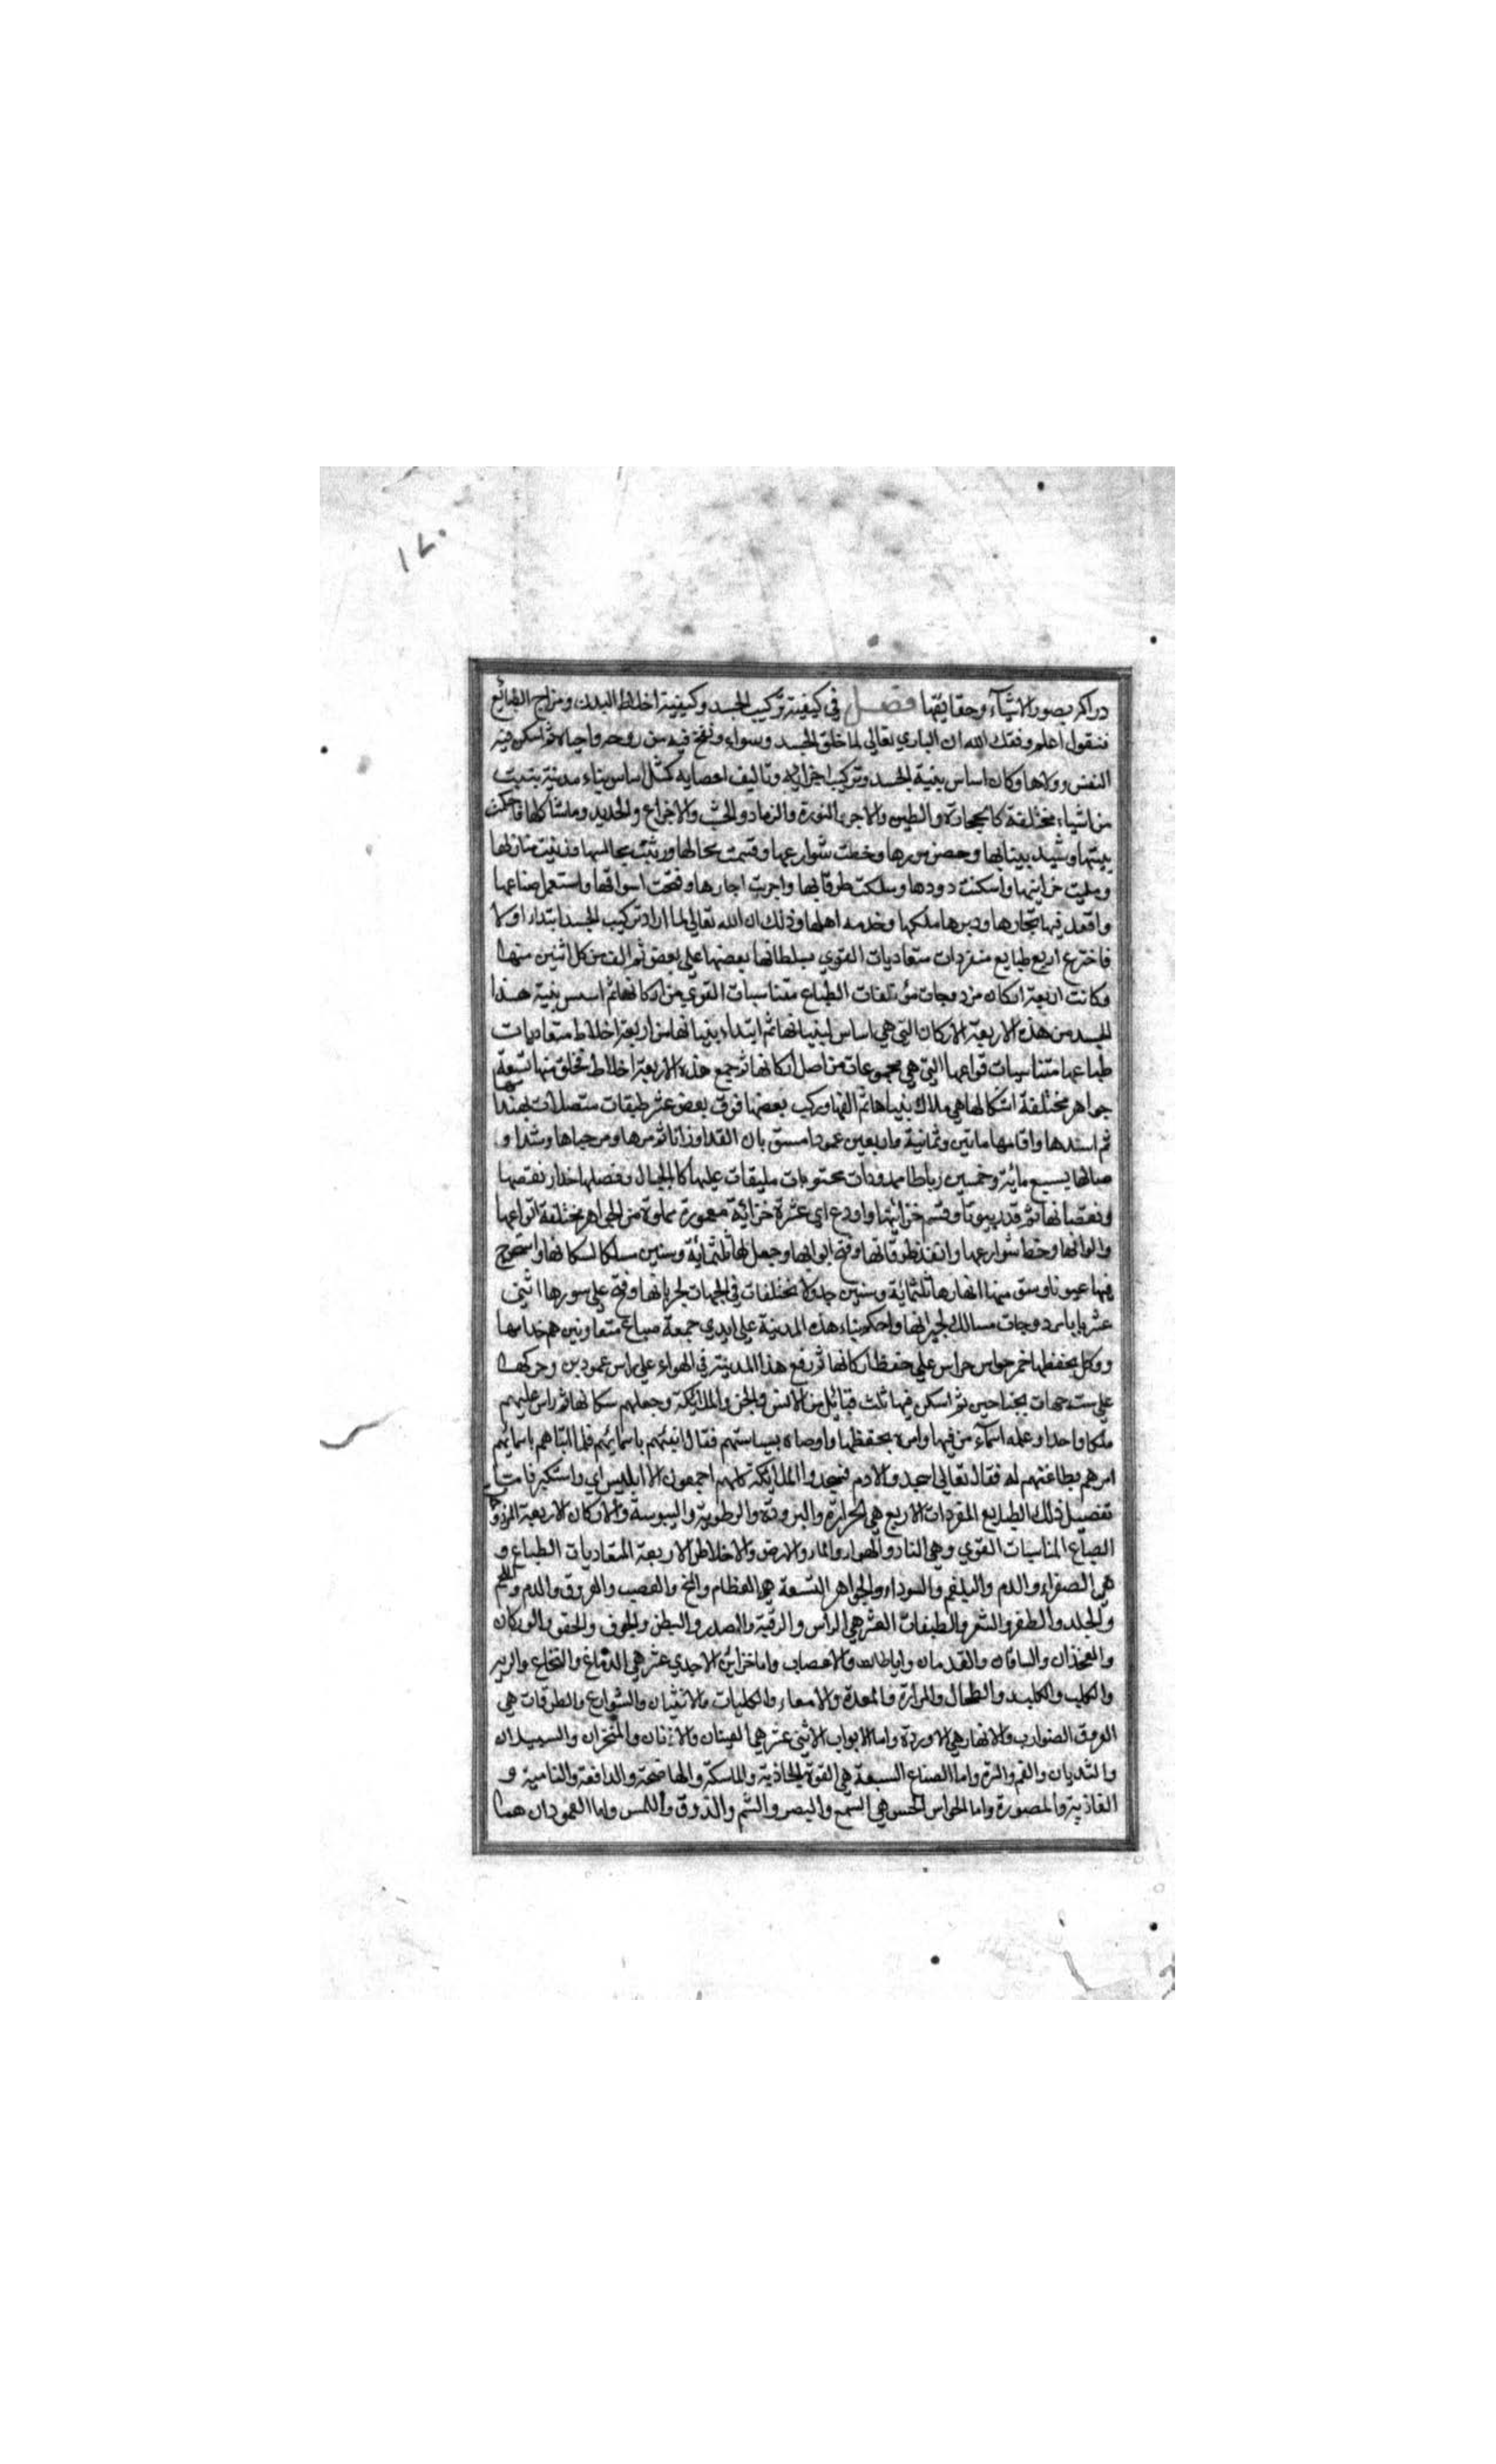 ١٧٠
دراكر بصور الاشيآء وحقايقها فصل في كيفية تركيب الجسد وكيفية اخلاط البدن ومزاج الطبائع
فنقول اعلم وفقك الله ان الباري تعالى لما خلق الجسد وسواه ونفخ فيه من روحه واحياه ثم اسكن فيه
النفس وولاها وكان اساس بنية الجسد وتركيب اجزائه وتاليف اعضايه كمثل اساس بناء مدينة بنيت
من اشياء مختلفة كالحجارة والطين والاجر والنورة والرماد والخشب والاجراع والحديد وما شاكلها فاحكمت
بنيتها وشيد بنيانها وحصن سورها وخطت شوارعها وقسمت محالها ورتبت مجالسها وزينت منازلها
ومليت خزاينها واسكنت دودها وسلكت طرقاتها واجريت انهارها وفتحت اسواقها واستعمل صناعها
واقعد فيها تجارها ودبرها ملكها وخدمه اهلها وذلك ان الله تعالى لما اراد تركيب الجسد ابتداء اولا
فاخترع اربع طبايع منفردات متعاديات القوي بسلطانها بعضها على بعض ثم الف من كل اثنين منها
فكانت اربعة اركان مزدوجات مؤتلفات الطباع متناسبات القوي من اركانها ثم اسس بنية هذا
الجسد من هذه الاربعة الاركان التي هي اساس لبنيانها ثم ابتداء بنيانها من اربعة اخلاط متعاديات
طباعها متناسبات قواعها التي هي مجموعات من اصل اركانها ثم جمع هذه الاربعة اخلاط فخلق منها تسعة
جواهر مختلفة اشكالها هي ملاك بنيانها ثم الفها وركب بعضها فوق بعض عشر طبقات متصلات بهندامها
ثم اسندها واقامها ماتين وثمانية واربعين عمودا مستويات القد اوزانا ثم مرها ومرجباها وشدا و
صالها بسبع مائة وخمسين رباطا ممدودات محتويات مليقات عليها كالحبال وفصلها
ونقصانها ثم قدر بيوتا وقسم خزائنها واودع احدي عشرة خزانة معمورة مملوة من الجواهر مختلفة انواعها
والوانها وخط شوارعها وانفذ طرقاتها وفتح ابوابها وجعل لها ثلثمائة وستين مسلكا لسكانها واستخرج
فيها عيونا وشق منها انهارها ثلثمائة وستين جدولا مختلفات في الجهات لجريانها وفتح على سورها اثنى
عشر بابا مزدوجات مسالك لجيرانها واحكم بناء هذه المدينة على ايدي سبعة صناع متعاونين هم خدامها
ووكل بحفظها خمس حواس حراس على حفظ اركانها ثم رفع هذا المدينة في الهواء على راس عمودين وحركها
على ست جهات بجناحين ثم اسكن فيها ثلث قبائل من الانس والجن والملائكة وجعلهم سكانها ثم راس عليهم
ملكا واحدا وعلمه اسمآء من فيها وامره بحفظها واوصاه بسياستهم فقال انبئهم باسمائهم فلما انباهم باسمائهم
امرهم بطاعتهم له فقال تعالى اسجدوا لادم فسجدوا الملائكة كلهم اجمعون الا ابليس ابي واستكبر فامات
تفصيل ذلك الطبايع المفردات الاربع هي الحرارة والبرودة والرطوبة واليبوسة والاركان الاربعة المزدوجات
الصباغ المناسبات القوي وهي النار والهواء والماء والارض والاخلاط الاربعة المتعاديات الطباع و
هي الصفراء والدم والبلغم والسوداء والجواهر التسعة هي العظام والمخ والعصب والعروق والدم واللحم
والجلد والظفر والشعر والطبقات العشر هي الراس والرقبة والصدر والبطن والجوف والحقو والوركان
والفخذان والساقان والقدمان والاعصاب واما خزائن الاحدي عشر هي الدماغ والنخاع والريه
والقلب والكبد والطحال والمرارة والمعدة والامعاء والكليات والانثيان والشوارع والطرقات هي
العروق الضوارب والانهار هي الاوردة واما الابواب الاثني عشر هما العينان والاذنان والمنخران والسبيلان
والثديان والفم والسرة واما الصناع السبعة هي القوة الجاذبة والماسكة والهاضمة والدافعة والنامية و
الغاذية والمصورة واما الحواس الخمس هي السمع والبصر والشم والذوق واللمس واما العمودان هما